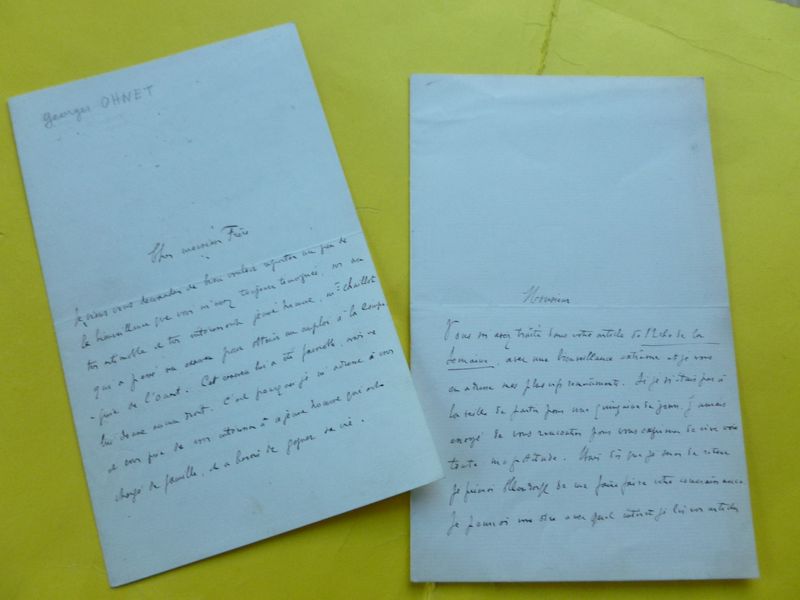 Georges OHNET
Cher monsieur Frère
Je viens vous demander de bien vouloir reporter un peu de
la bienveillance que vous m'avez toujours témoignée, sur un
très estimable et très intéressant jeune homme, Mr Chaillot
qui a passé un examen pour obtenir un emploi à la Compa
-gnie de l'Ouest. Cet examen lui a été favorable, mais ne
lui donne aucun droit. C'est pourquoi je m'adresse à vous
et vous prie de vous intéresser à ce jeune homme qui est
chargé de famille, et a besoin de gagner sa vie.
Monsieur
Vous m'avez traité dans votre article de l'Echo de la
Semaine, avec une bienveillance extrême et je vous
en adresse mes plus vifs remerciements. Si je n'étais pas à
la veille de partir pour une quinzaine de jours, j'aurais
essayé de vous rencontrer pour vous exprimer de vive voix
toute ma gratitude. Mais dès que je serai de retour
je prierai Ollendorff de me faire faire votre connaissance.
Je pourrai vous dire avec quel intérêt je lis vos articles